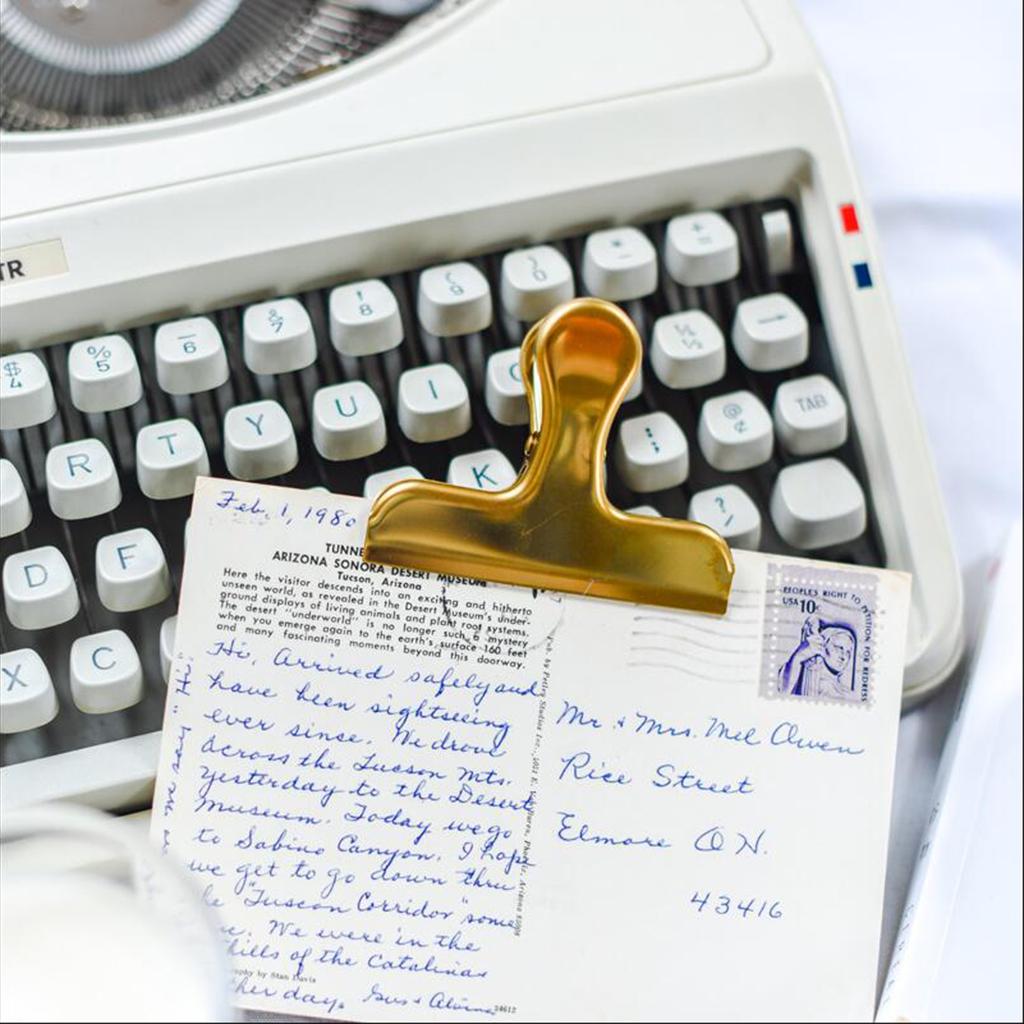 TR
+ =
* -
) 0
( 9
! 8
& 7
_ 6
% 5
$ 4
¼ ½
R T Y U I
@ ¢
TAB
D F
K
: ;
? /
X C
Feb. 1, 1980
TUNNE
ARIZONA SONORA DESERT MUSEUM
Tucson, Arizona
Here the visitor descends into an exciting and hitherto
unseen world, as revealed in the Desert Museum's under-
ground displays of living animals and plant root systems.
The desert "underworld" is no longer such a mystery
when you emerge again to the earth's surface 160 feet
and many fascinating moments beyond this doorway.
Hi, Arrived safely and
have been sightseeing
ever since. We drove
across the Tucson Mts.
yesterday to the Desert
Museum. Today we go
to Sabino Canyon. I hope
we get to go down thru
he "Tuscon Corridor" some
We were in the
hills of the Catalinas
her day. Gus & Alvina
we say "Hi"
graphy by Stan Davis
24612
Pub. by Petley Studios Inc., Phoenix, Arizona
PEOPLE'S RIGHT TO PETITION FOR REDRESS
USA 10c
Mr. & Mrs. Mel Owen
Rice Street
Elmore OH.
43416